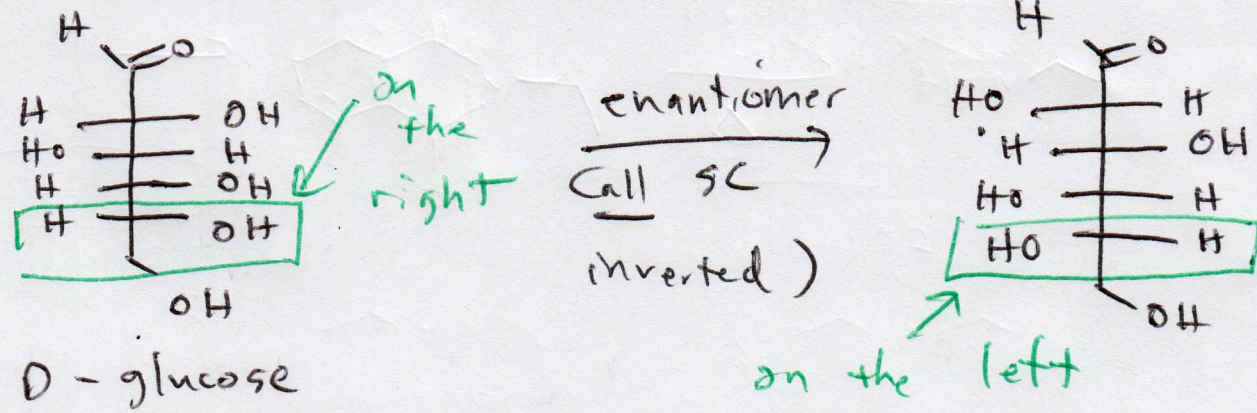 H
O
H OH
HO H
H OH
H OH
OH
D - glucose
on
the
right
enantiomer
(all SC
inverted)
H
O
HO H
H OH
HO H
HO H
OH
on the left